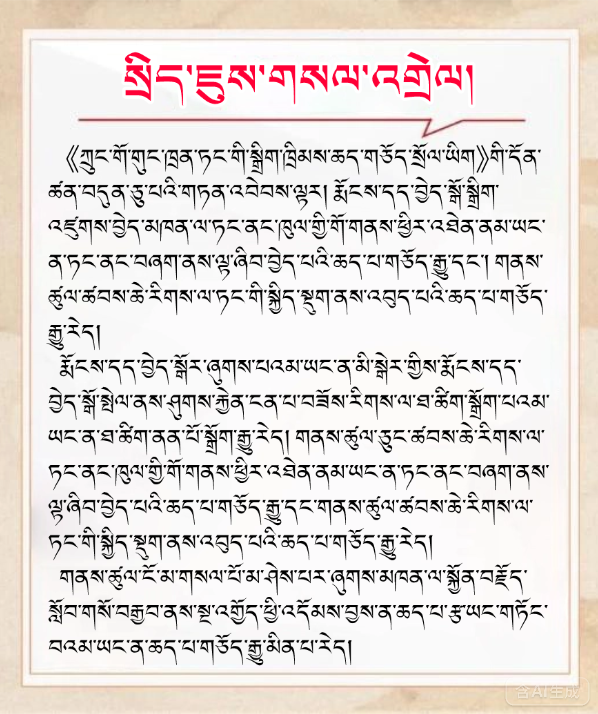 སྲིད་ཇུས་གསལ་འགྲེལ།
《ཀྲུང་གོ་གུང་ཁྲན་ཏང་གི་སྒྲིག་ཁྲིམས་ཆད་གཅོད་སྲོལ་ཡིག》གི་དོན་
ཚན་བདུན་ཅུ་པའི་གཏན་འབེབས་ལྟར། རྨོངས་དད་བྱེད་སྒོ་སྒྲིག་
འཛུགས་བྱེད་མཁན་ལ་ཏང་ནང་ཁུལ་གྱི་གོ་གནས་ཕྱིར་འཐེན་ནམ་ཡང་
ན་ཏང་ནང་བཞག་ནས་ལྟ་ཞིབ་བྱེད་པའི་ཆད་པ་གཅོད་རྒྱུ་དང་། གནས་
ཚུལ་ཚབས་ཆེ་རིགས་ལ་ཏང་གི་སྐྱིད་སྡུག་ནས་འབུད་པའི་ཆད་པ་གཅོད་
རྒྱུ་རེད།
རྨོངས་དད་བྱེད་སྒོར་ཞུགས་པའམ་ཡང་ན་མི་སྒེར་གྱིས་རྨོངས་དད་
བྱེད་སྒོ་སྤེལ་ནས་ཤུགས་རྐྱེན་ངན་པ་བཟོས་རིགས་ལ་ཐ་ཚིག་སྒྲོག་པའམ་
ཡང་ན་ཐ་ཚིག་ནན་པོ་སྒྲོག་རྒྱུ་རེད། གནས་ཚུལ་ཅུང་ཚབས་ཆེ་རིགས་ལ་
ཏང་ནང་ཁུལ་གྱི་གོ་གནས་ཕྱིར་འཐེན་ནམ་ཡང་ན་ཏང་ནང་བཞག་ནས་
ལྟ་ཞིབ་བྱེད་པའི་ཆད་པ་གཅོད་རྒྱུ་དང་གནས་ཚུལ་ཚབས་ཆེ་རིགས་ལ་
ཏང་གི་སྐྱིད་སྡུག་ནས་འབུད་པའི་ཆད་པ་གཅོད་རྒྱུ་རེད།
གནས་ཚུལ་ངོ་མ་གསལ་པོ་མ་ཤེས་པར་ཞུགས་མཁན་ལ་སྐྱོན་བརྗོད་
སློབ་གསོ་བརྒྱབ་ནས་སྔ་འགྱོད་ཕྱི་འདོམས་བྱས་ན་ཆད་པ་རྩ་ཡང་གཏོང་
བའམ་ཡང་ན་ཆད་པ་གཅོད་རྒྱུ་མིན་པ་རེད།
含AI生成